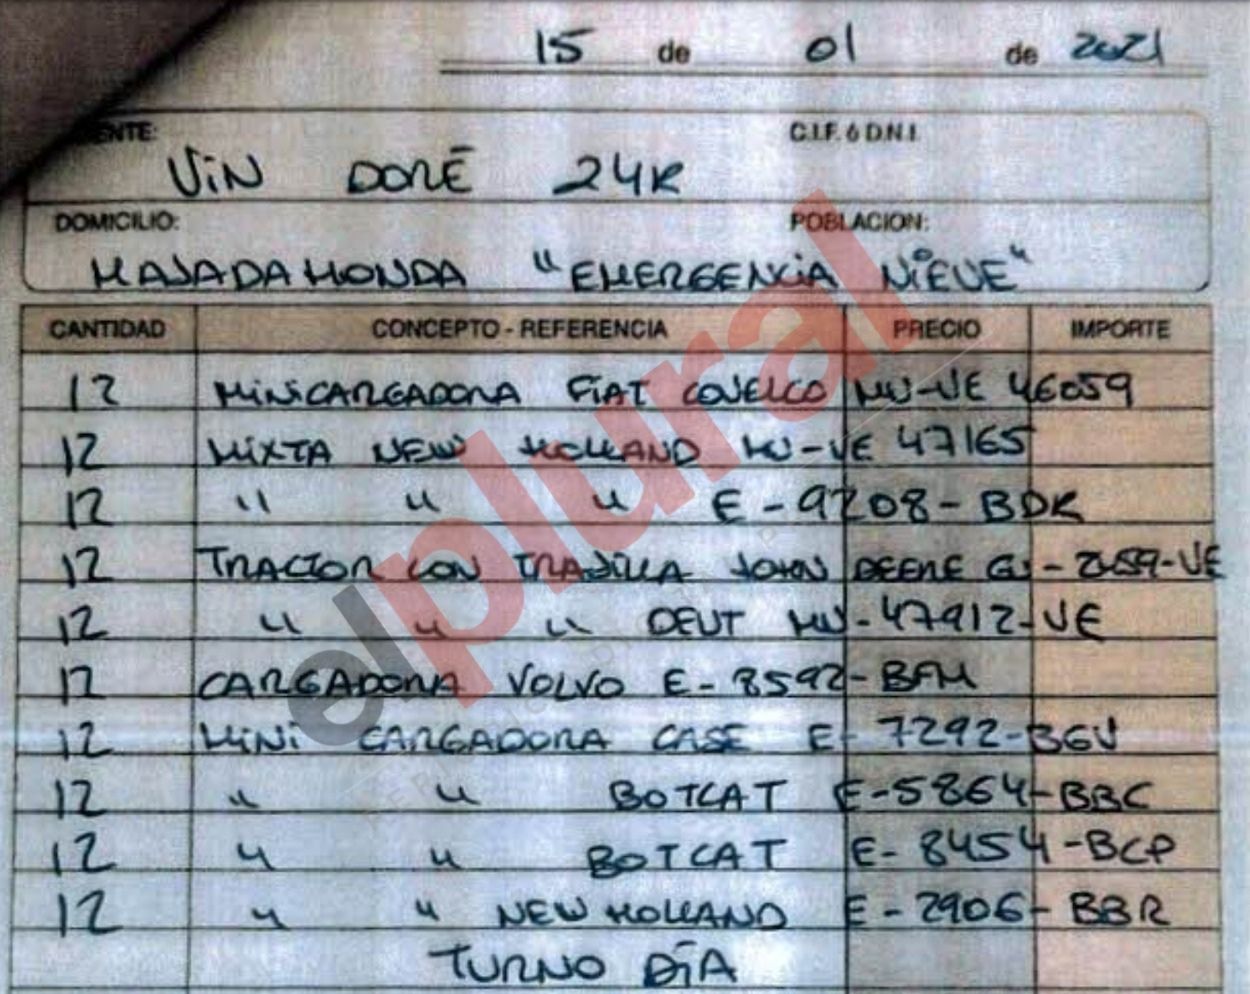 15 de 01 de 2021
ENTE: C.I.F. ó D.N.I.
ViN DORÉ 24K
DOMICILIO: POBLACION:
MAJADAHONDA "EMERGENCiA NiEVE"
CANTIDAD CONCEPTO - REFERENCIA PRECIO IMPORTE
12 MiNiCARGADORA FiAT COVELCO MU-VE 46059
12 MiXTA NEW HOLLAND MU-VE 47165
12 " " " E-9208-BDK
12 TRACTOR CON TRAJILLA JOHN DEERE GU-2659-VE
12 " " " DEUT MU-47912-VE
12 CARGADORA VOLVO E-8592-BFM
12 MiNi CARGADORA CASE E-7292-BGV
12 " " BOTCAT E-5864-BBC
12 " " BOTCAT E-8454-BCP
12 " " NEW HOLLAND E-2906-BBR
TURNO DÍA
elplural